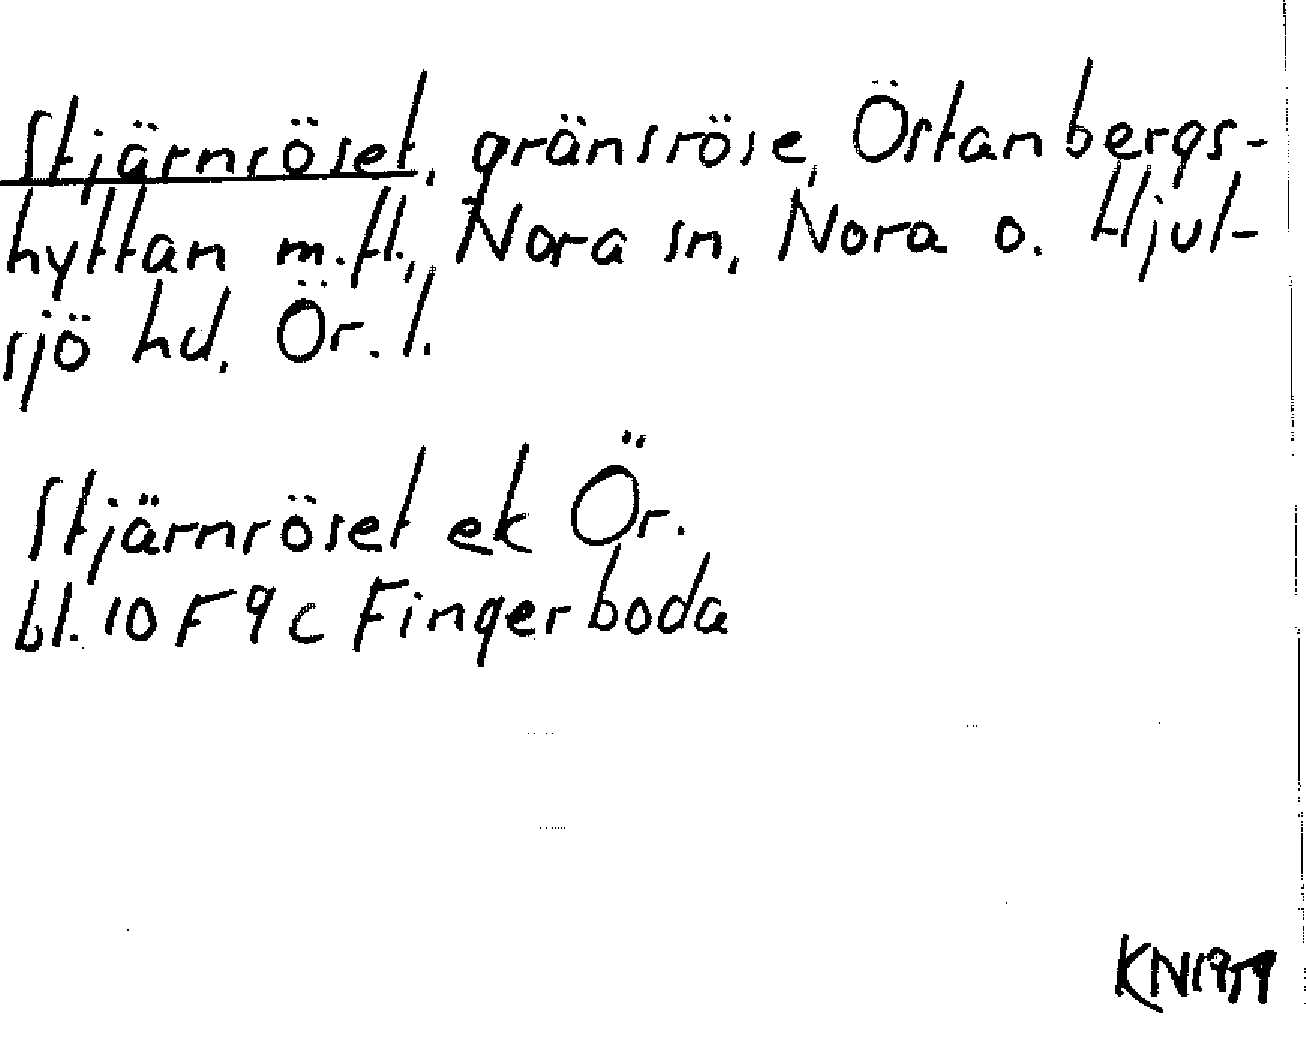 Stjärnröset, gränsröse, Östanbergs-
hyttan m.fl., Nora sn, Nora o. Hjul-
sjö hd, Ör. l.
Stjärnröset ek Ör.
bl. 10 F 9 c Fingerboda
KN1979